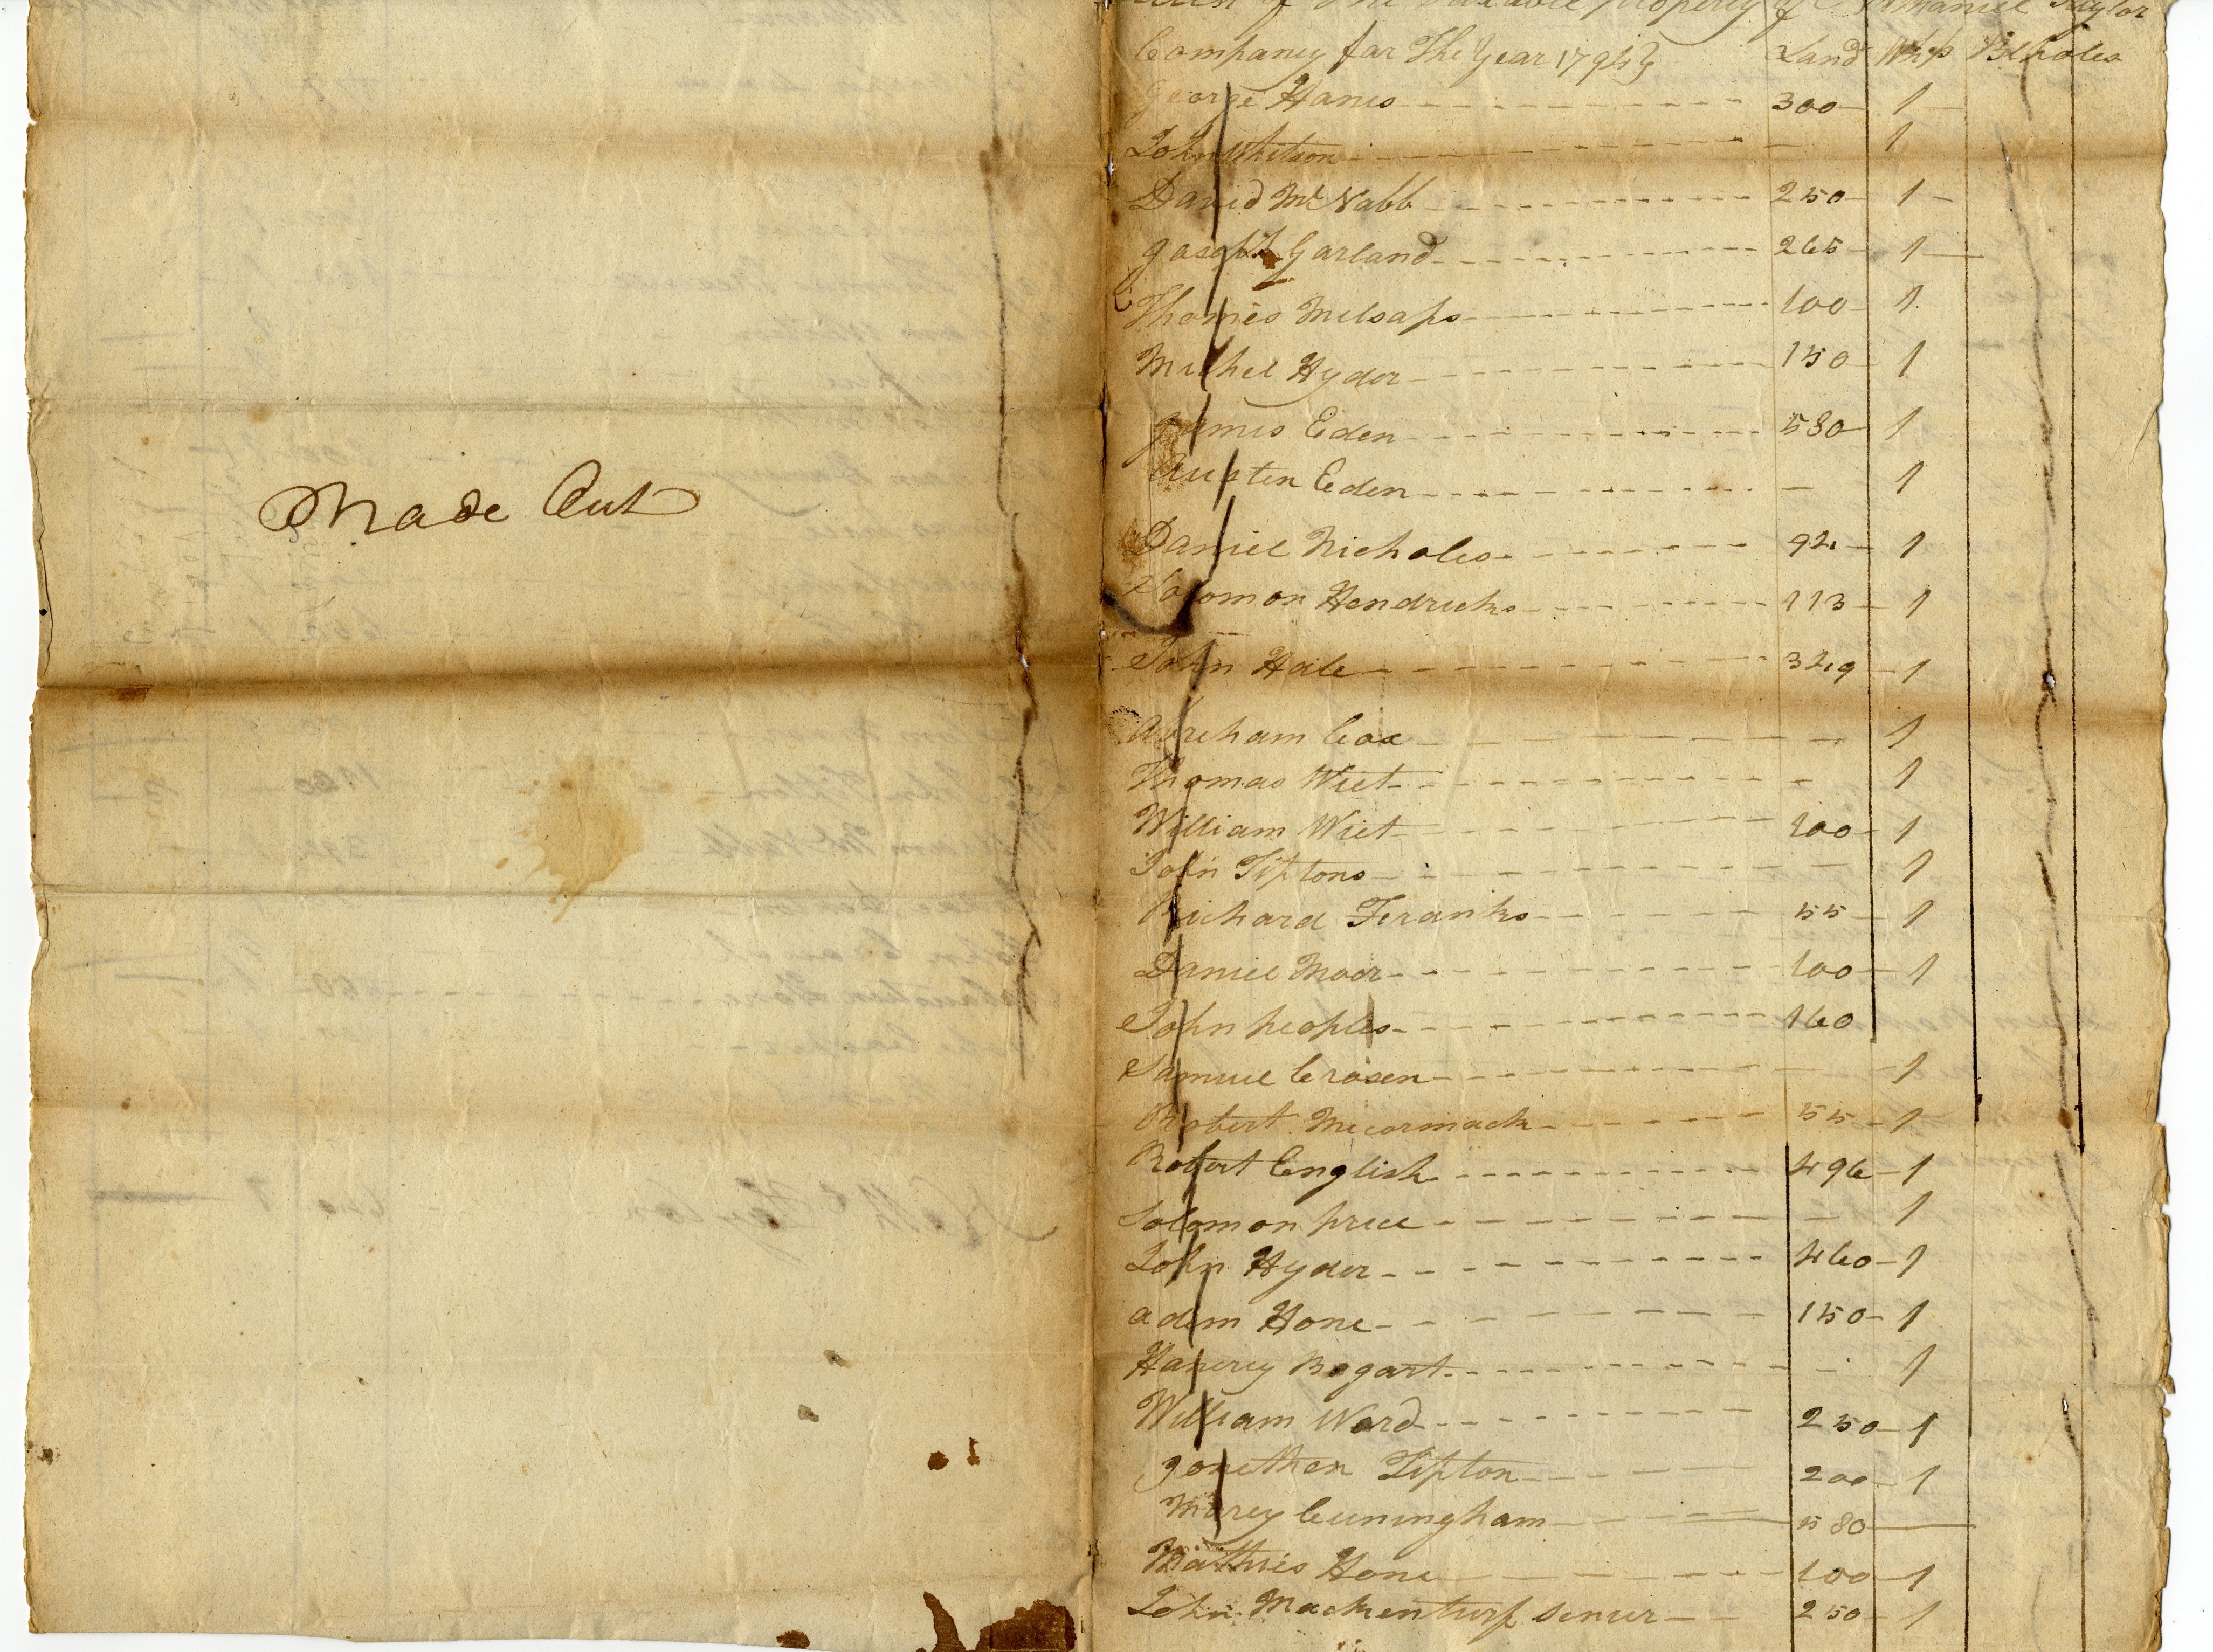 Made Out
List of the taxable property of C Nathaniel Taylor
Company for The Year 1795 Land Whps Blpoles
George Hanis 300 1
John Whitson 1
David McNabb 250 1
Joseph Garland 265 1
Thomes Milsaps 100 1
Michel Hyder 150 1
James Eden 580 1
Austen Eden 1
Daniel Nicholes 92 1
Solomon Hendricks 113 1
John Hale 329 1
Abreham Cox 1
Thomas Wiet 1
William Wiet 100 1
John Tiptons 1
Richard Feranks 55 1
Daniel Moor 100 1
John peoples 160
Samuel Crosen 1
Robert Mccormack 55 1
Robert English 496 1
Solomon price 1
John Hyder 460 1
adem Hone 150 1
Hanerey Bogart 1
William Ward 250 1
Jonethen Tipton 200 1
Marey Cuningham 580
Mathies Hone 100 1
John Mackenturf senur 250 1